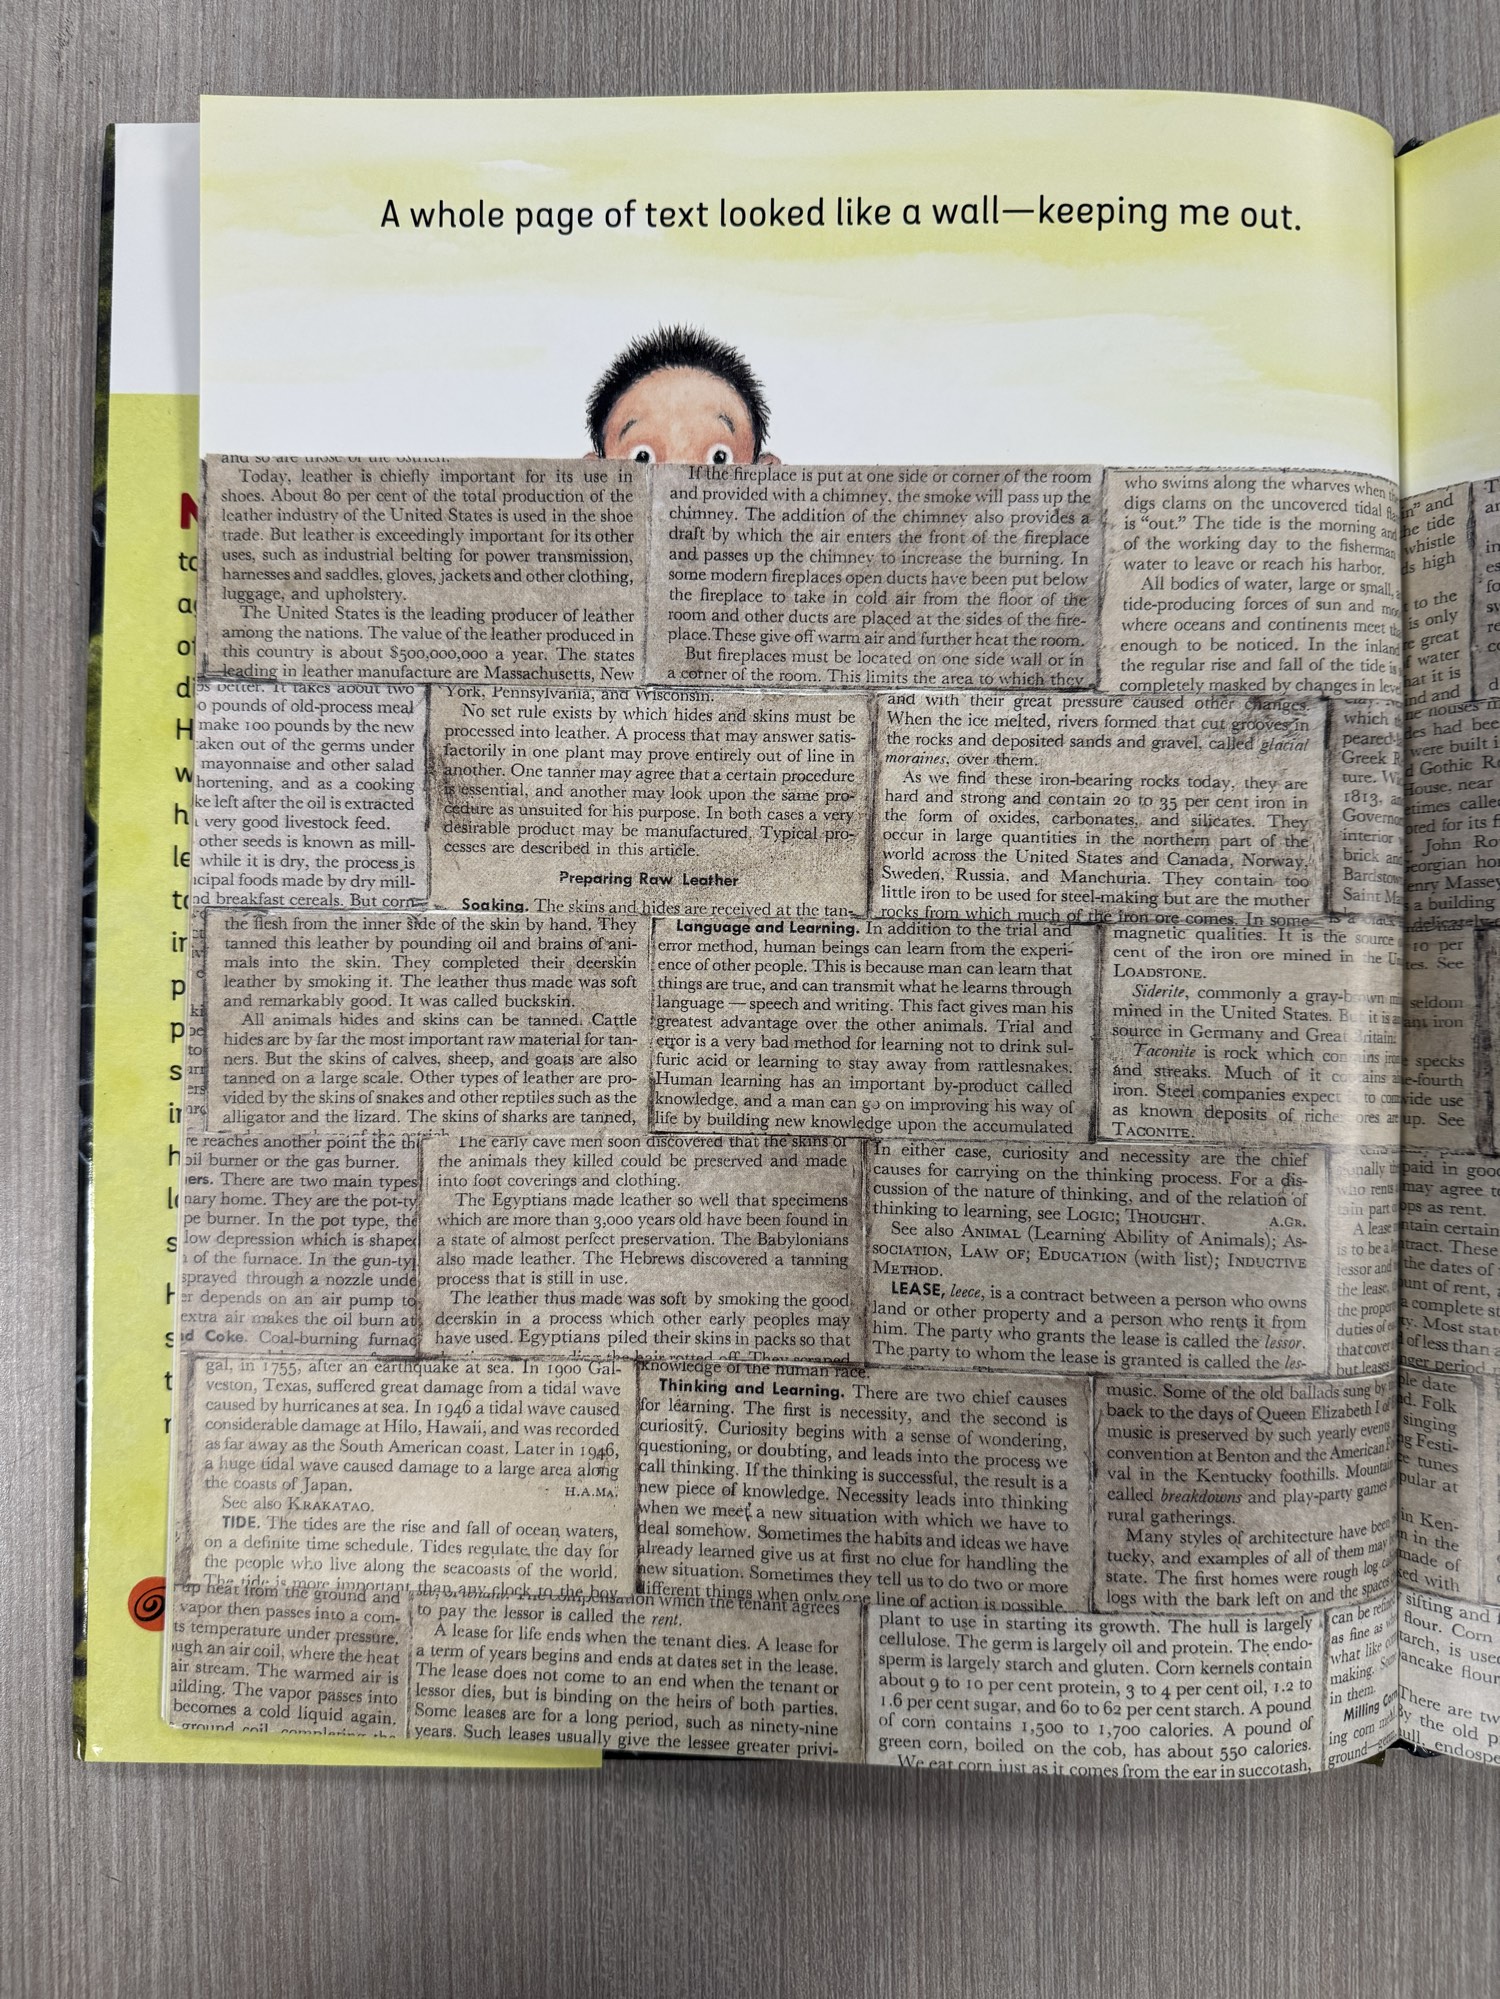 A whole page of text looked like a wall—keeping me out.
Today, leather is chiefly important for its use in
shoes. About 80 per cent of the total production of the
leather industry of the United States is used in the shoe
trade. But leather is exceedingly important for its other
uses, such as industrial belting for power transmission,
harnesses and saddles, gloves, jackets and other clothing,
luggage, and upholstery.
The United States is the leading producer of leather
among the nations. The value of the leather produced in
this country is about $500,000,000 a year. The states
leading in leather manufacture are Massachusetts, New
If the fireplace is put at one side or corner of the room
and provided with a chimney, the smoke will pass up the
chimney. The addition of the chimney also provides a
draft by which the air enters the front of the fireplace
and passes up the chimney to increase the burning. In
some modern fireplaces open ducts have been put below
the fireplace to take in cold air from the floor of the
room and other ducts are placed at the sides of the fire-
place. These give off warm air and further heat the room.
But fireplaces must be located on one side wall or in
a corner of the room. This limits the area to which they
who swims along the wharves when
digs clams on the uncovered tidal
is "out." The tide is the morning and
of the working day to the fisherman
water to leave or reach his harbor.
All bodies of water, large or small,
tide-producing forces of sun and
where oceans and continents meet
enough to be noticed. In the inland
the regular rise and fall of the tide is
completely masked by changes in
better. It takes about two
pounds of old-process meal
make 100 pounds by the new
taken out of the germs under
mayonnaise and other salad
hortening, and as a cooking
left after the oil is extracted
very good livestock feed.
other seeds is known as mill-
while it is dry, the process is
foods made by dry mill-
breakfast cereals. But corn
York, Pennsylvania, and Wisconsin.
No set rule exists by which hides and skins must be
processed into leather. A process that may answer satis-
factorily in one plant may prove entirely out of line in
another. One tanner may agree that a certain procedure
is essential, and another may look upon the same pro-
cedure as unsuited for his purpose. In both cases a very
desirable product may be manufactured. Typical pro-
cesses are described in this article.
Preparing Raw Leather
Soaking. The skins and hides are received at the tan-
and with their great pressure caused other changes.
When the ice melted, rivers formed that cut grooves in
the rocks and deposited sands and gravel, called glacial
moraines, over them.
As we find these iron-bearing rocks today, they are
hard and strong and contain 20 to 35 per cent iron in
the form of oxides, carbonates, and silicates. They
occur in large quantities in the northern part of the
world across the United States and Canada, Norway,
Sweden, Russia, and Manchuria. They contain too
little iron to be used for steel-making but are the mother
rocks from which much of the iron ore comes. In some
the flesh from the inner side of the skin by hand. They
tanned this leather by pounding oil and brains of ani-
mals into the skin. They completed their deerskin
leather by smoking it. The leather thus made was soft
and remarkably good. It was called buckskin.
All animals hides and skins can be tanned. Cattle
hides are by far the most important raw material for tan-
ners. But the skins of calves, sheep, and goats are also
tanned on a large scale. Other types of leather are pro-
vided by the skins of snakes and other reptiles such as the
alligator and the lizard. The skins of sharks are tanned,
Language and Learning. In addition to the trial and
error method, human beings can learn from the experi-
ence of other people. This is because man can learn that
things are true, and can transmit what he learns through
language — speech and writing. This fact gives man his
greatest advantage over the other animals. Trial and
error is a very bad method for learning not to drink sul-
furic acid or learning to stay away from rattlesnakes.
Human learning has an important by-product called
knowledge, and a man can go on improving his way of
life by building new knowledge upon the accumulated
magnetic qualities. It is the source
cent of the iron ore mined in the
LOADSTONE.
Siderite, commonly a gray-brown
mined in the United States. But it is
source in Germany and Great Britain.
Taconite is rock which contains iron
and streaks. Much of it contains
iron. Steel companies expect to
as known deposits of richer ores are
TACONITE.
reaches another point the
oil burner or the gas burner.
There are two main types
nary home. They are the pot-ty
burner. In the pot type, the
low depression which is shaped
of the furnace. In the gun-ty
sprayed through a nozzle unde
depends on an air pump to
extra air makes the oil burn at
Coke. Coal-burning furnac
The early cave men soon discovered that the skins of
the animals they killed could be preserved and made
into foot coverings and clothing.
The Egyptians made leather so well that specimens
which are more than 3,000 years old have been found in
a state of almost perfect preservation. The Babylonians
also made leather. The Hebrews discovered a tanning
process that is still in use.
The leather thus made was soft by smoking the good
deerskin in a process which other early peoples may
have used. Egyptians piled their skins in packs so that
In either case, curiosity and necessity are the chief
causes for carrying on the thinking process. For a dis-
cussion of the nature of thinking, and of the relation of
thinking to learning, see LOGIC; THOUGHT. A.GR.
See also ANIMAL (Learning Ability of Animals); As-
SOCIATION, LAW OF; EDUCATION (with list); INDUCTIVE
METHOD.
LEASE, leece, is a contract between a person who owns
land or other property and a person who rents it from
him. The party who grants the lease is called the lessor.
The party to whom the lease is granted is called the les-
gal, in 1755, after an earthquake at sea. In 1900 Gal-
veston, Texas, suffered great damage from a tidal wave
caused by hurricanes at sea. In 1946 a tidal wave caused
considerable damage at Hilo, Hawaii, and was recorded
as far away as the South American coast. Later in 1946,
a huge tidal wave caused damage to a large area along
the coasts of Japan. H.A.MA.
See also KRAKATAO.
TIDE. The tides are the rise and fall of ocean waters,
on a definite time schedule. Tides regulate the day for
the people who live along the seacoasts of the world.
The tide is more important than any clock to the boy
knowledge of the human race.
Thinking and Learning. There are two chief causes
for learning. The first is necessity, and the second is
curiosity. Curiosity begins with a sense of wondering,
questioning, or doubting, and leads into the process we
call thinking. If the thinking is successful, the result is a
new piece of knowledge. Necessity leads into thinking
when we meet a new situation with which we have to
deal somehow. Sometimes the habits and ideas we have
already learned give us at first no clue for handling the
new situation. Sometimes they tell us to do two or more
different things when only one line of action is possible.
music. Some of the old ballads sung by
back to the days of Queen Elizabeth I of
music is preserved by such yearly events
convention at Benton and the American
val in the Kentucky foothills. Mountain
called breakdowns and play-party games
rural gatherings.
Many styles of architecture have been
tucky, and examples of all of them may
state. The first homes were rough log
logs with the bark left on and the spaces
heat from the ground and
vapor then passes into a com-
temperature under pressure.
an air coil, where the heat
air stream. The warmed air is
The vapor passes into
becomes a cold liquid again.
The compensation which the tenant agrees
to pay the lessor is called the rent.
A lease for life ends when the tenant dies. A lease for
a term of years begins and ends at dates set in the lease.
The lease does not come to an end when the tenant or
lessor dies, but is binding on the heirs of both parties.
Some leases are for a long period, such as ninety-nine
years. Such leases usually give the lessee greater privi-
plant to use in starting its growth. The hull is largely
cellulose. The germ is largely oil and protein. The endo-
sperm is largely starch and gluten. Corn kernels contain
about 9 to 10 per cent protein, 3 to 4 per cent oil, 1.2 to
1.6 per cent sugar, and 60 to 62 per cent starch. A pound
of corn contains 1,500 to 1,700 calories. A pound of
green corn, boiled on the cob, has about 550 calories.
We eat corn just as it comes from the ear in succotash,
can be
as fine as
what like
making.
in them.
Milling Corn
ing corn
ground